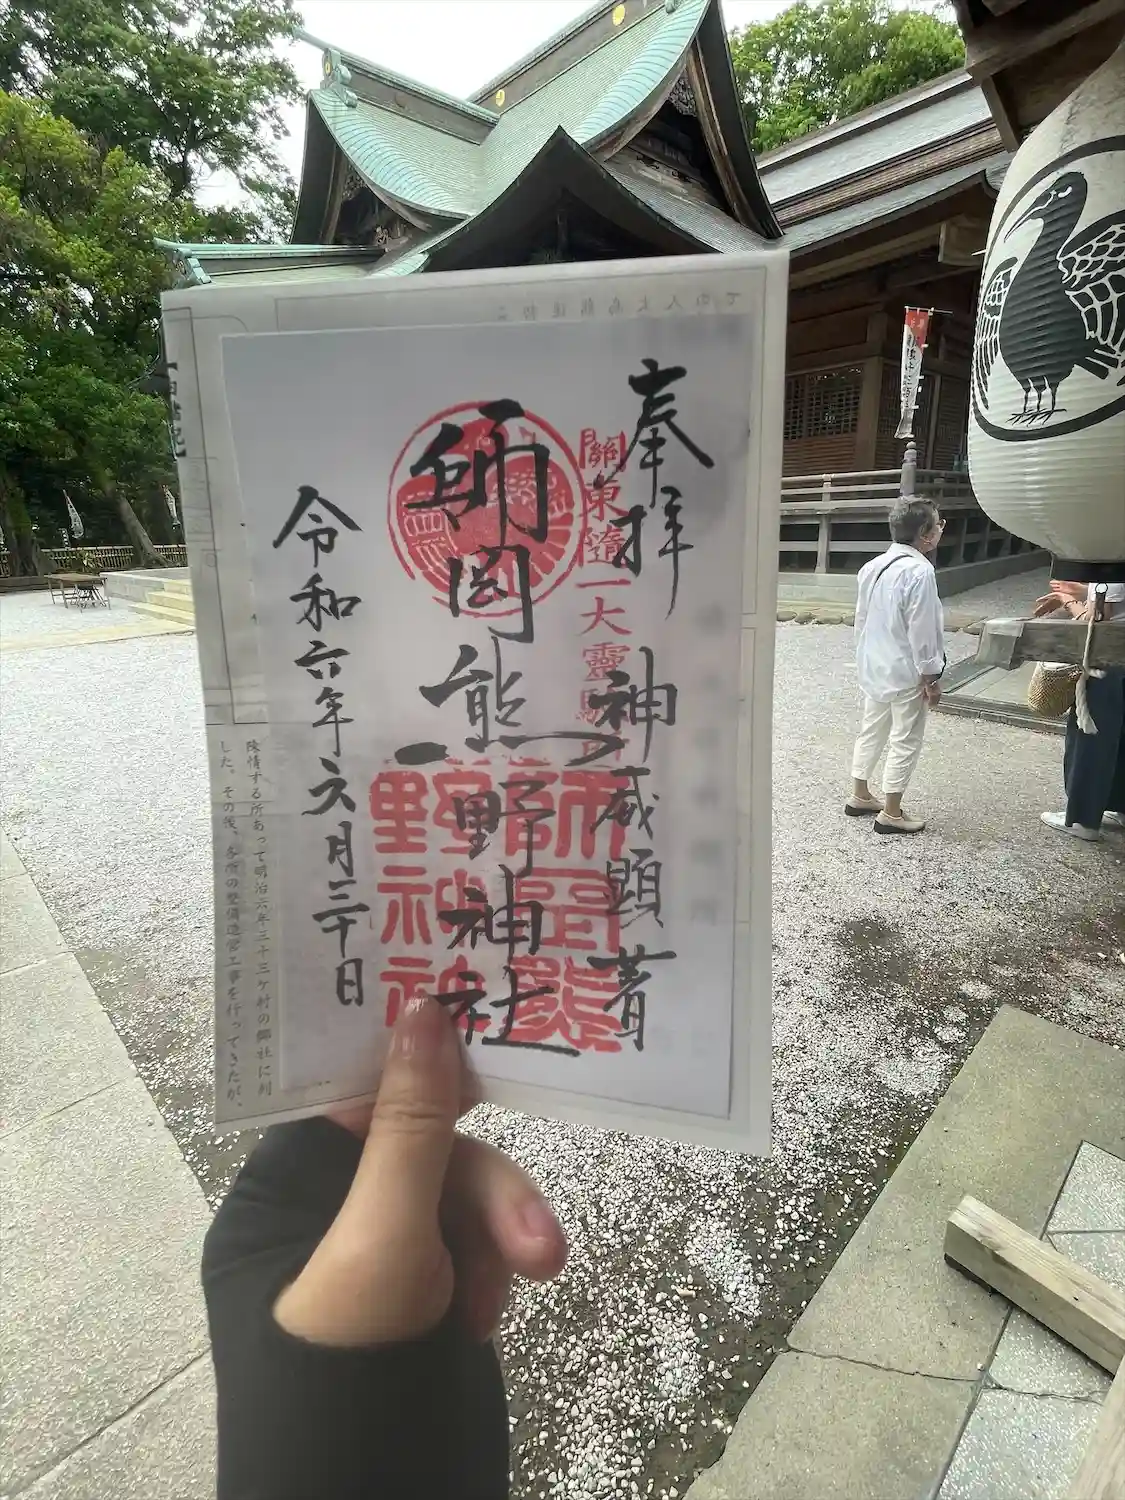 奉拝
神威顕著
關東隨一大靈驗所
師岡熊野神社
師岡熊野神社
令和六年六月三十日
陳情する所あって明治六年三十三ケ村の郷社に列
した。その後、各所の整備造営工事を行ってきたが、